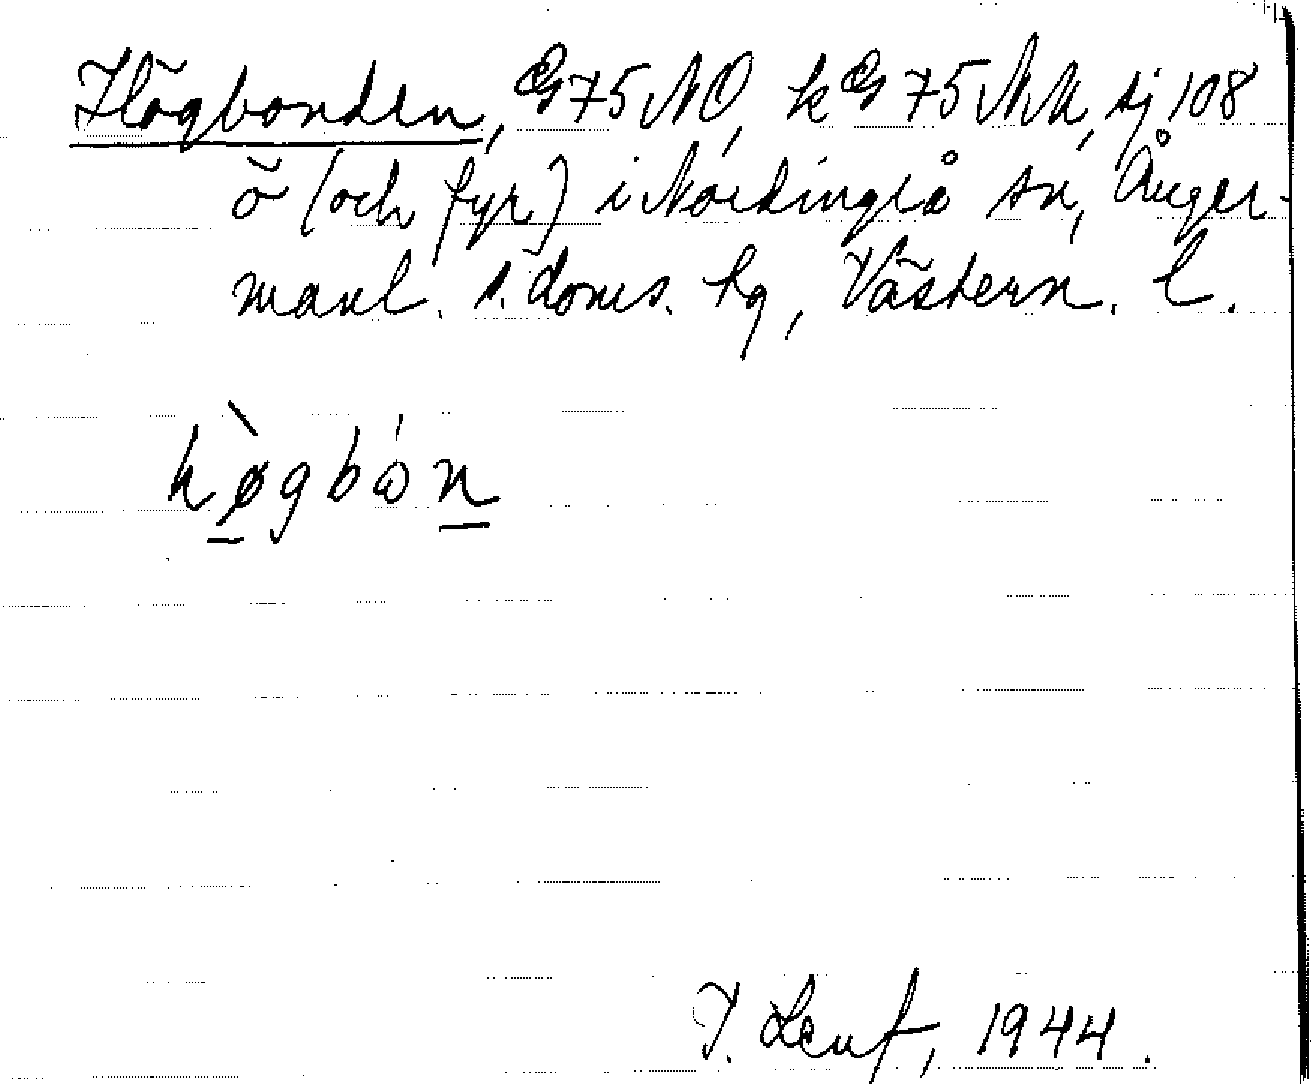 Högbonden, G75NO, k G75NN, sj 108
ö (och fyr) i Nordingrå sn, Ånger-
manl. s. doms. hg, Västern. l.
hø̀gbón
Leuf, 1944.